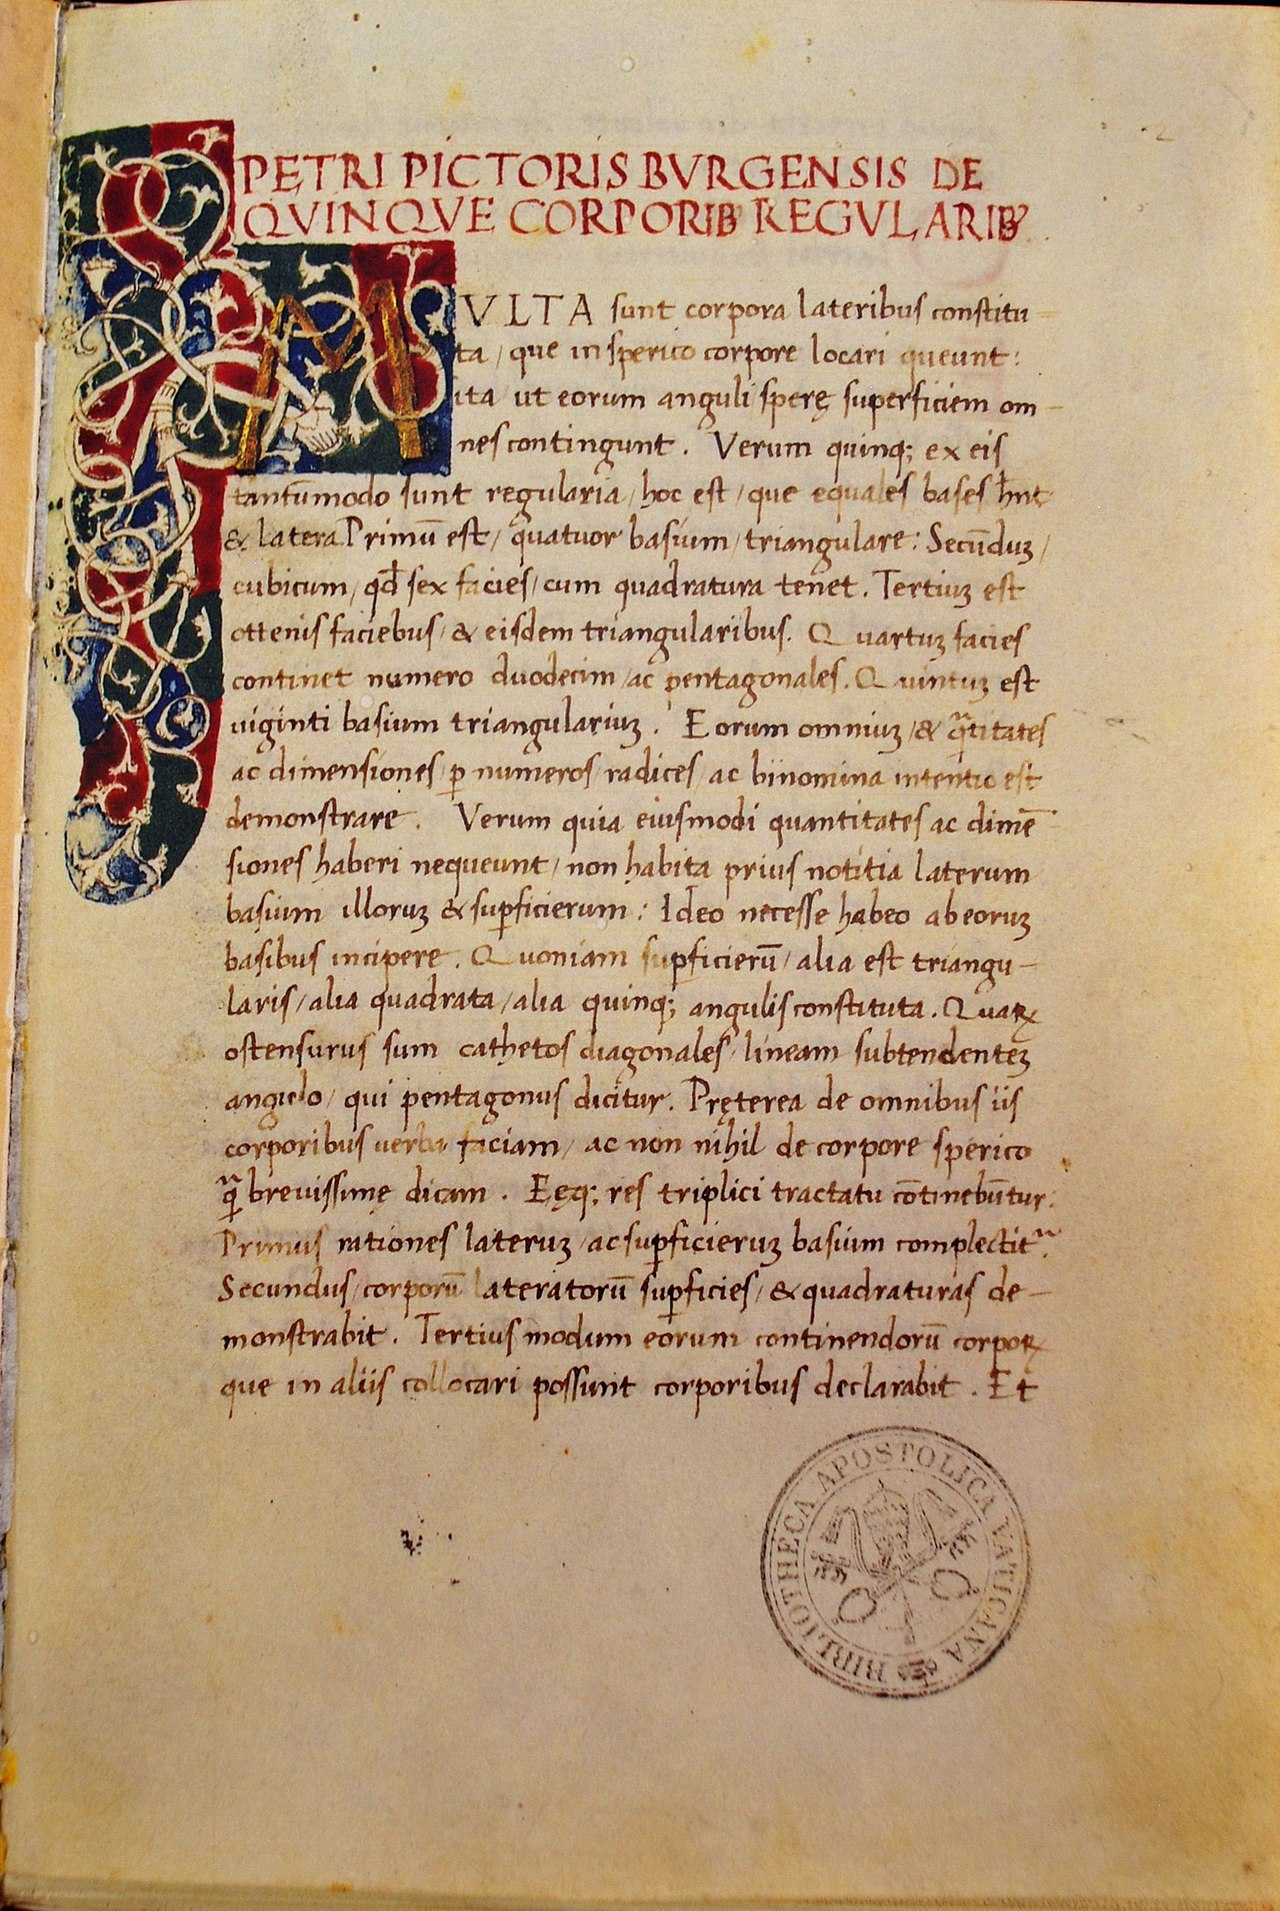 PETRI PICTORIS BVRGENSIS DE
QVINQVE CORPORIBꝰ REGVLARIBꝰ
MVLTA sunt corpora lateribus constitu-
ta / que in sperico corpore locari queunt:
ita / ut eorum anguli sperę superficiem om-
nes contingunt. Verum quinq; ex eis
tantum̄odo sunt regularia / hoc est / que equales bases hn̄t
& latera Primū est / quatuor basium / triangulare: Secūduꝫ /
cubicum / qd̄ sex facies / cum quadratura tenet. Tertiuꝫ est
ottenis faciebus / & eisdem triangularibus. Quartuꝫ facies
continet numero duodecim / ac pentagonales. Quintuꝫ est
uiginti basium triangulariuꝫ. Eorum omniuꝫ / & qᷓtitates
ac dimensiones / ꝑ numeros / radices / ac binomina intentio est
demonstrare. Verum quia eiusmodi quantitates ac dimē
siones haberi nequeunt / non habita prius notitia laterum
basium illoruꝫ & suꝑficierum: Ideo necesse habeo ab eoruꝫ
basibus incipere. Quoniam suꝑficierū / alia est triangu-
laris / alia quadrata / alia quinq; angulis constituta. Quaꝝ
ostensurus sum cathetos diagonales / lineam subtendenteꝫ
angulo / qui pentagonus dicitur. Pręterea de omnibus iis
corporibus verba faciam / ac non nihil de corpore sperico
qᷓ breuissimę dicam. Eęq; res triplici tractatu cōtinebūtur:
Primus rationes lateruꝫ / ac suꝑficieruꝫ basium complectitᷣ.
Secundus / corporū lateratorū suꝑficies / & quadraturas de-
monstrabit. Tertius modum eorum continendorū corpoꝝ
que in aliis collocari possunt corporibus declarabit. Et
BIBLIOTHECA APOSTOLICA VATICANA